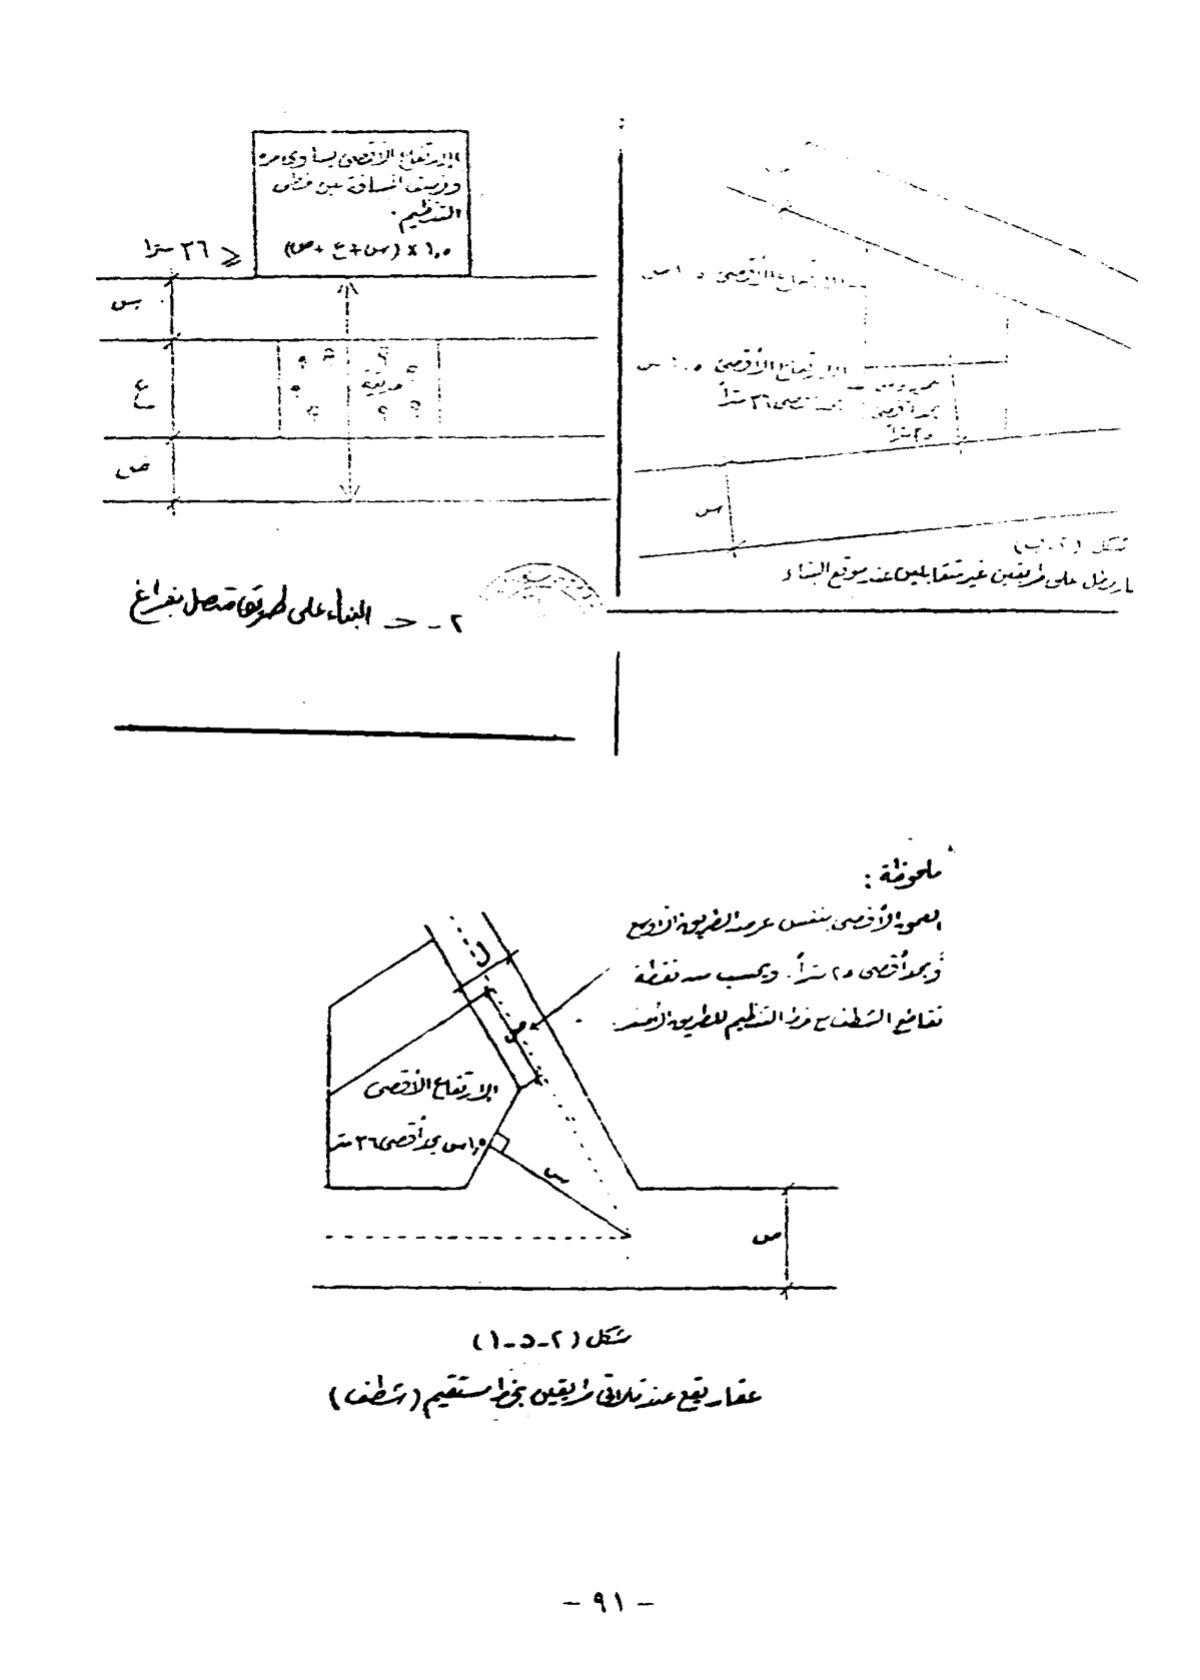 الارتفاع الأقصى يساوي مرة
ونصف المسافة بين خطي
التنظيم.
١,٥ × (س + ع + ص)
≥ ٣٦ مترا
س
ع
حديقة
ص
٢ - ح البناء على طريق متصل بفراغ
الارتفاع الأقصى
الارتفاع الأقصى ١,٥ س
بحد أقصى ٣٦ متراً
بحد أقصى
٢٥ متراً
س
شكل (٢ - ب)
على طريقين غير متقابلين عند موقع البناء
ملحوظة :
العمق الأقصى بنفس عرض الطريق الأوسع
وبحد أقصى ٢٥ متراً. ويحسب من نقطة
تقاطع الشطف مع خط التنظيم للطريق
ل
ص
الارتفاع الأقصى
١,٥ س بحد أقصى ٣٦ متر
س
ص
شكل (٢-د-١)
عقار يقع عند تلاقي طريقين بخط مستقيم (شطف)
- ٩١ -